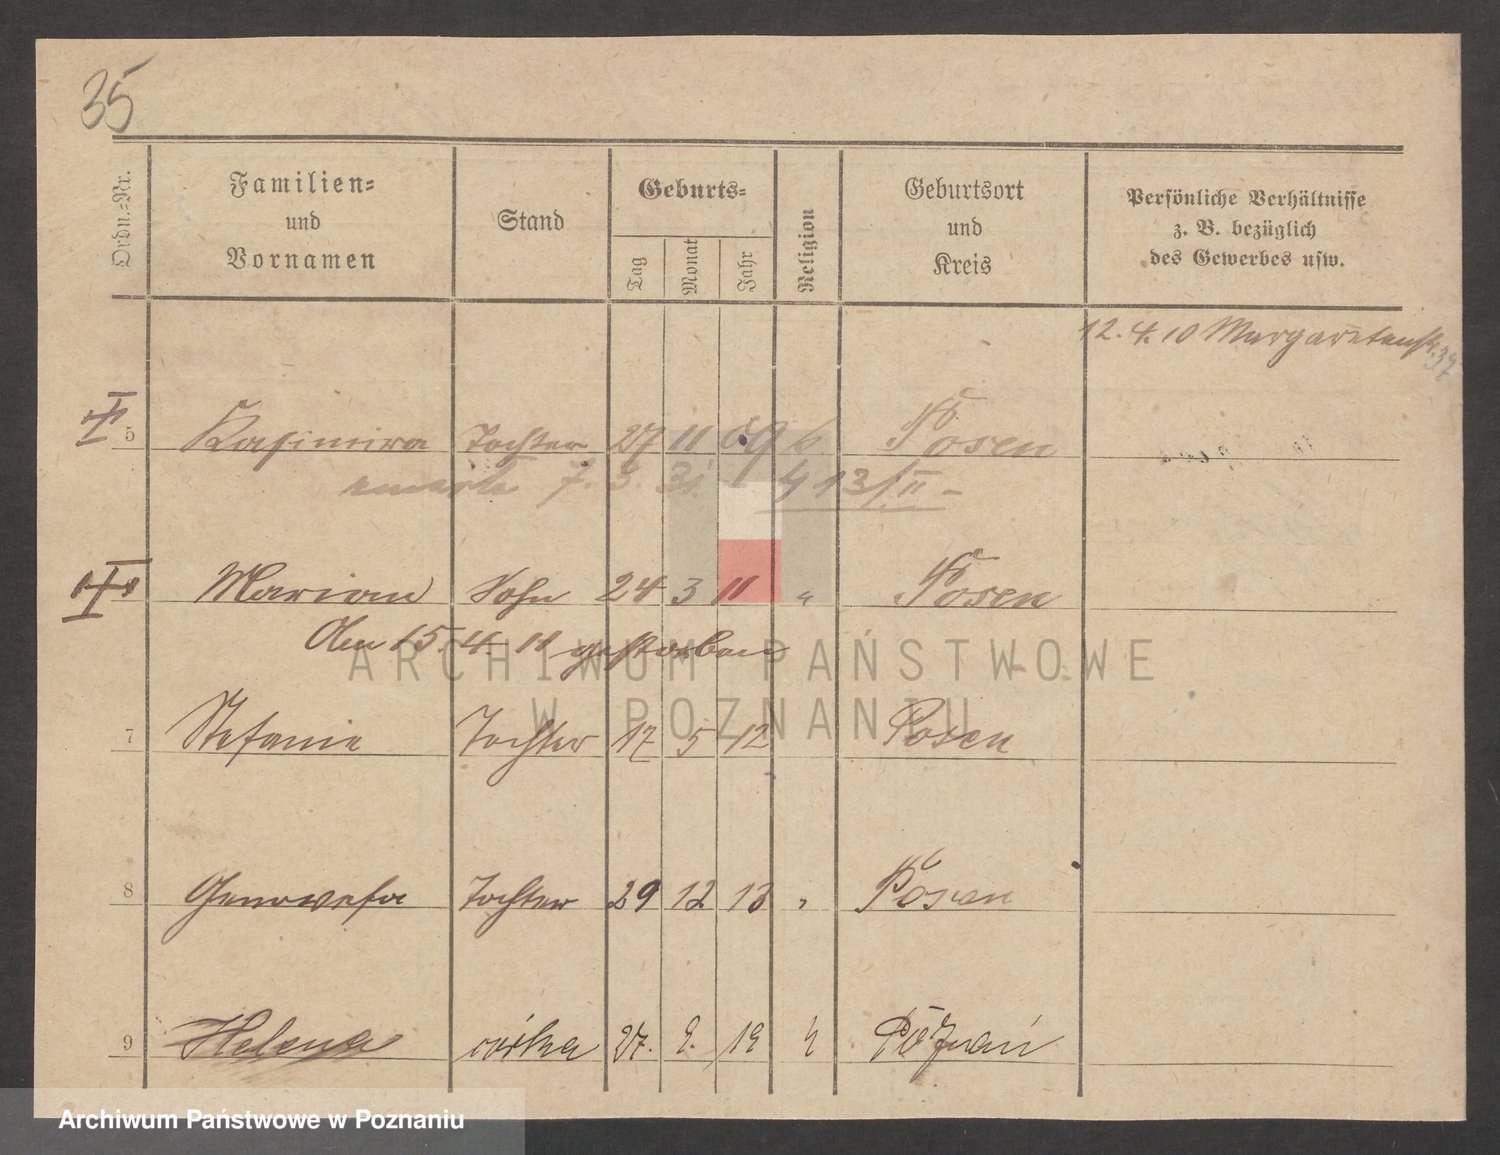 35
Ordn.-Nr.
Familien-
und
Vornamen
Stand
Geburts-
Tag
Monat
Jahr
Religion
Geburtsort
und
Kreis
Persönliche Verhältnisse
z. B. bezüglich
des Gewerbes usw.
12. 4. 10 Margaretenstr. 37
5 Kasimira Tochter 27 11 09 k. Posen
zmarła 7. 3. 31. 13/II
Marian Sohn 24 3 11 " Posen
Am 15. 4. 11 gestorben
7 Stefanie Tochter 17 5 12 Posen
8 Genowefa Tochter 29 12 13 " Posen
9 Helena córka 27. 9. 19 Poznań
ARCHIWUM PAŃSTWOWE
W POZNANIU
Archiwum Państwowe w Poznaniu